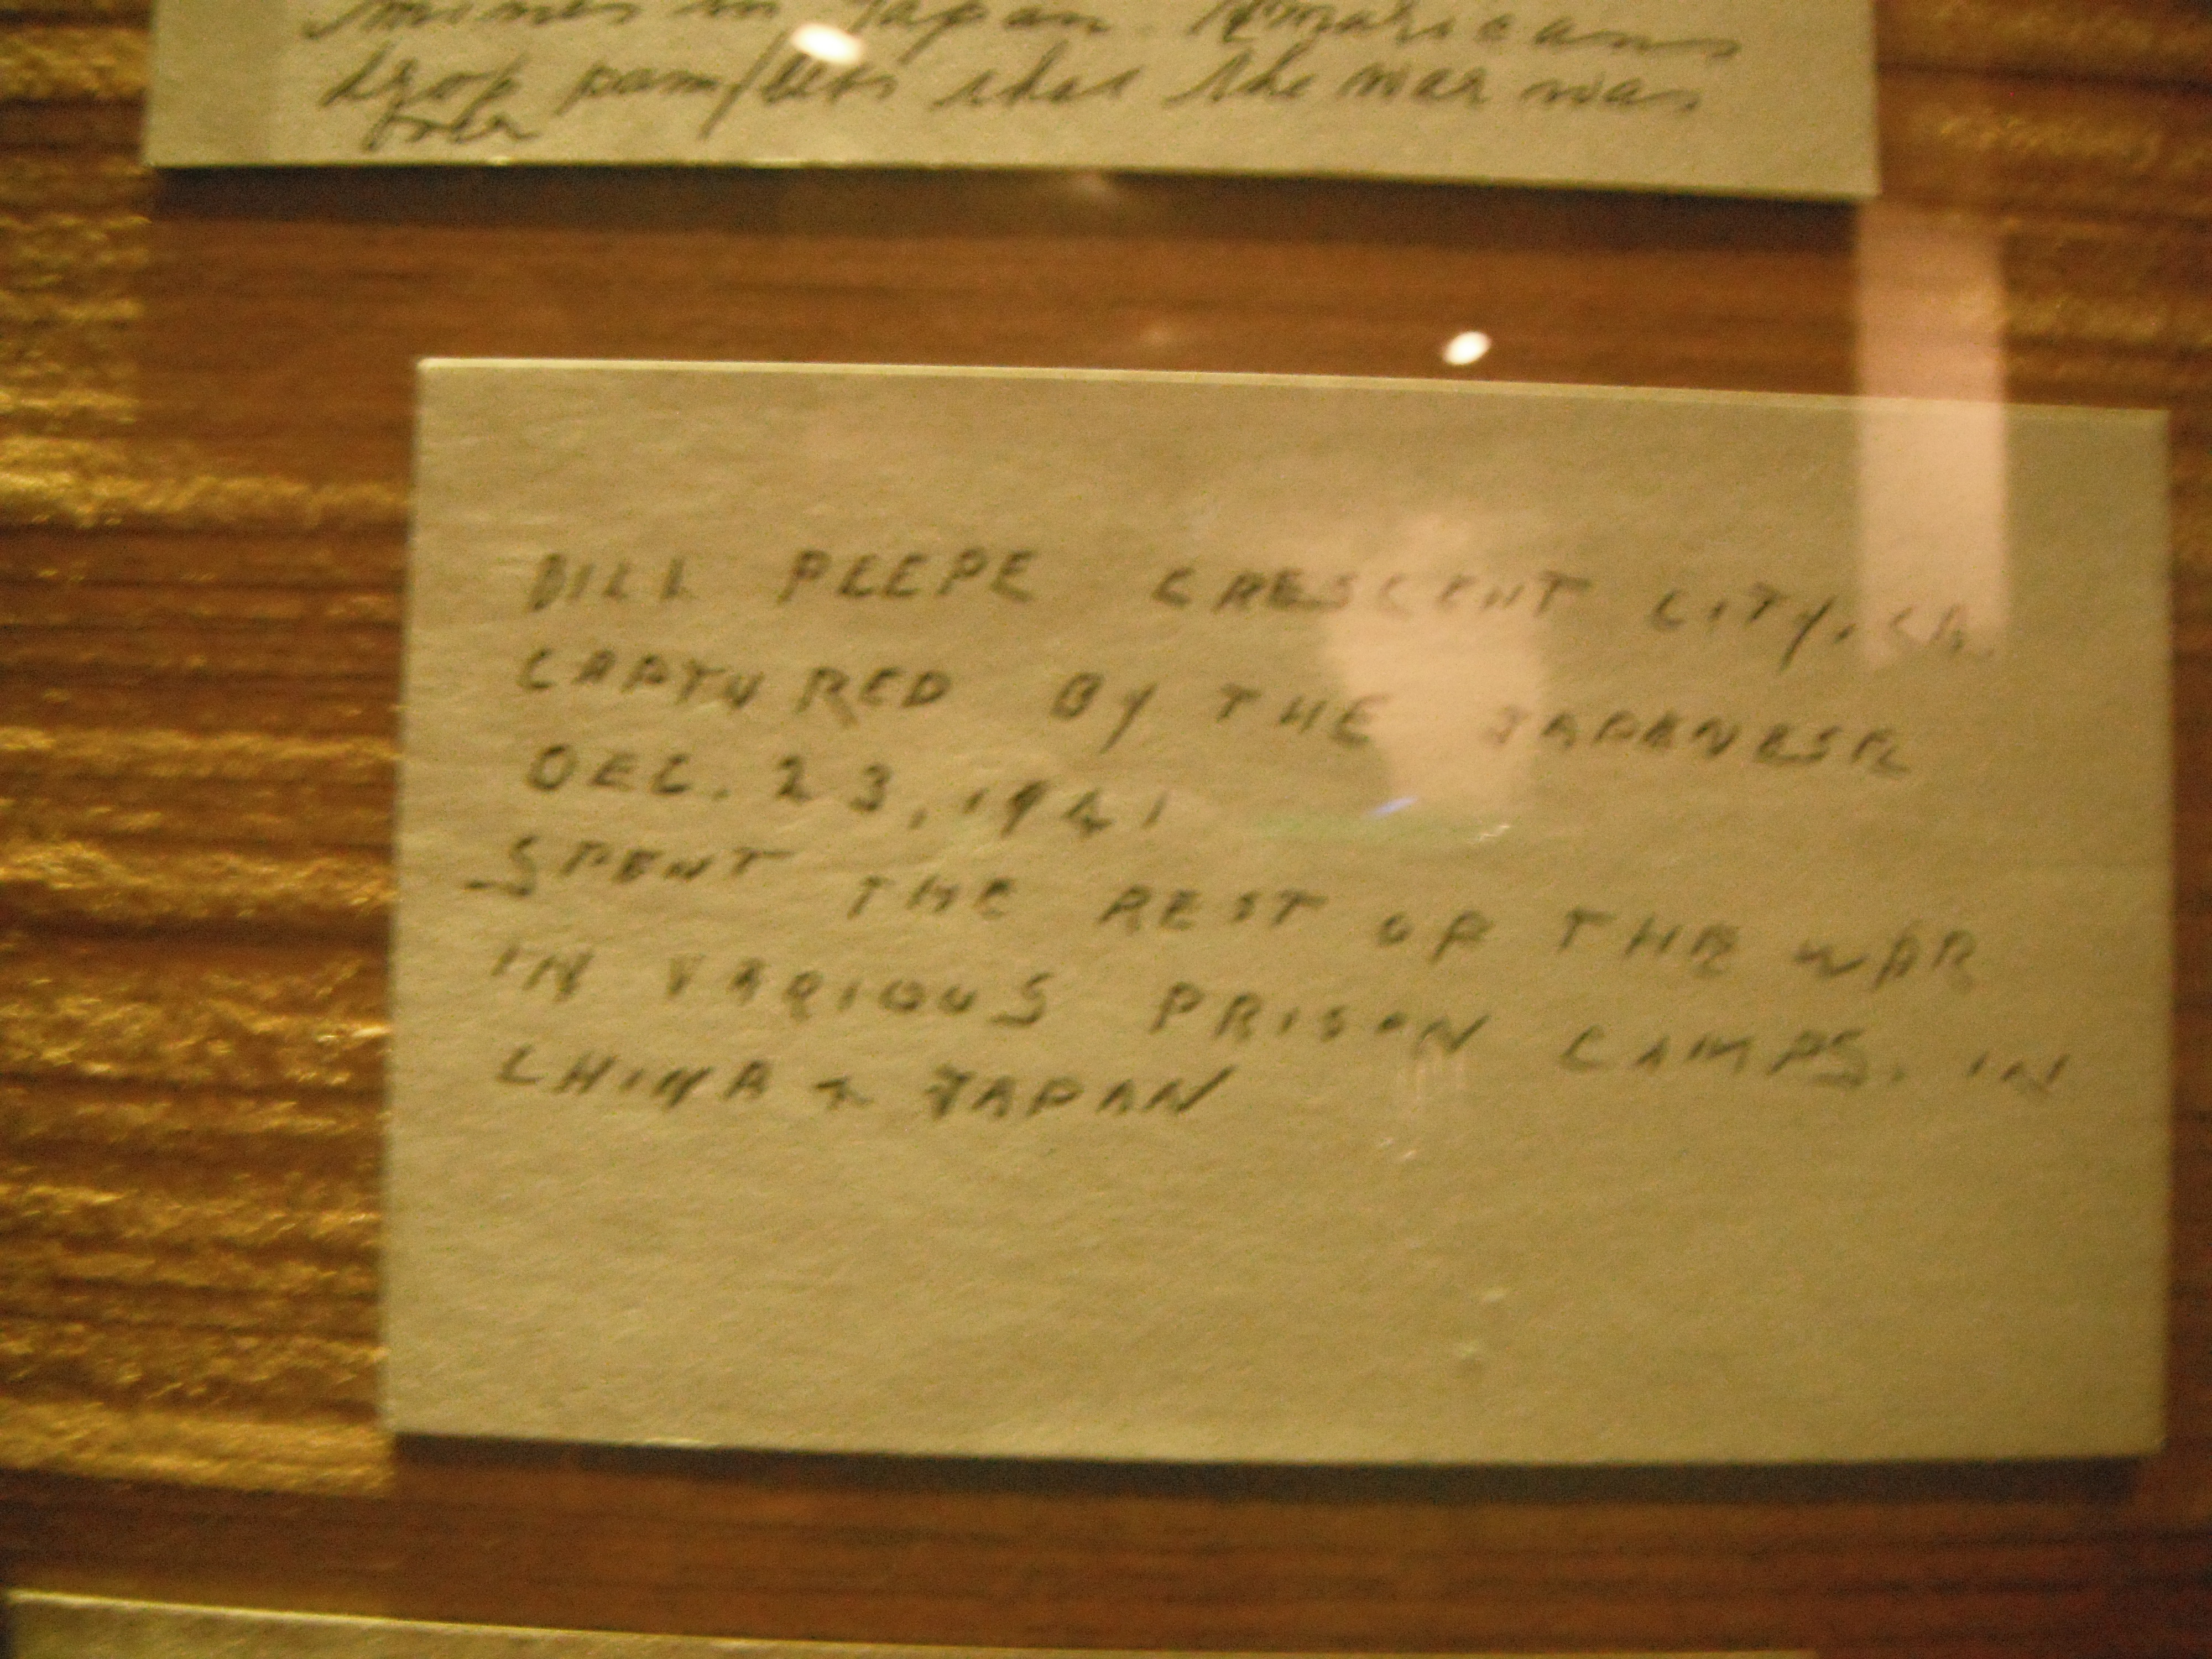 mines in Japan. Americans
drop pamflets that the war was
over
BILL PEEPE CRESCENT CITY, CA.
CAPTURED BY THE JAPANESE
DEC. 23, 1941
SPENT THE REST OF THE WAR
IN VARIOUS PRISON CAMPS. IN
CHINA & JAPAN